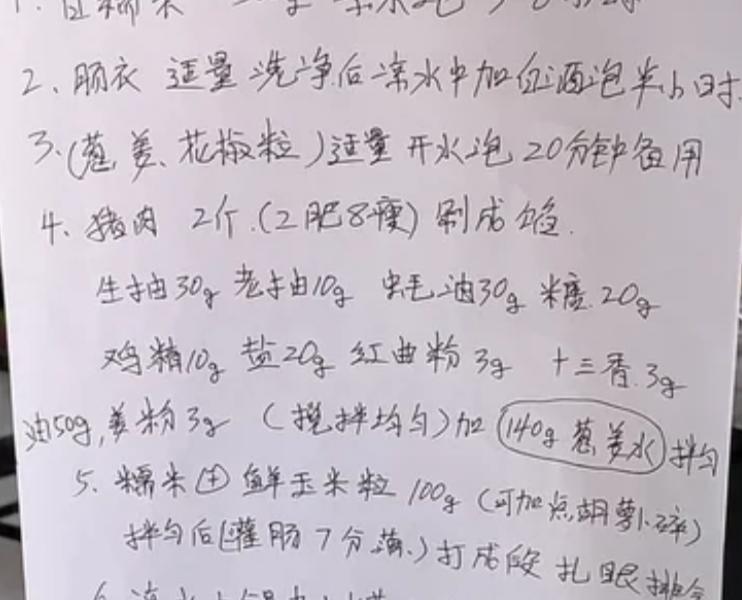 2、肠衣 适量 洗净后凉水中加白酒泡半小时
3、(葱、姜、花椒粒)适量 开水泡 20分钟备用
4、猪肉 2斤.(2肥8瘦) 剁成馅.
生抽30g 老抽10g 蚝油30g 糖20g
鸡精10g 盐20g 红曲粉 3g 十三香.3g
油50g,姜粉3g (搅拌均匀)加 140g 葱姜水 拌匀
5、糯米 ⊕ 鲜玉米粒 100g (可加点胡萝卜碎)
拌匀后(灌肠7分满)打成段 扎眼排